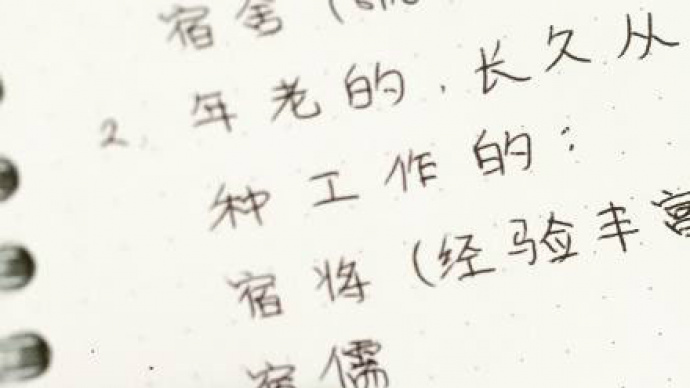 宿舍(
2. 年老的，长久从
种工作的：
宿将(经验丰富
宿儒